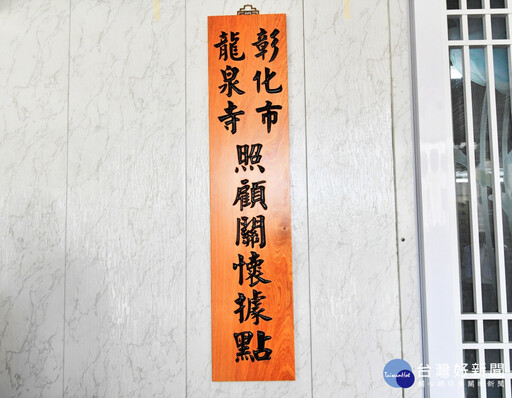 彰化市
龍泉寺
照顧關懷據點
台灣好新聞
TaiwanHot